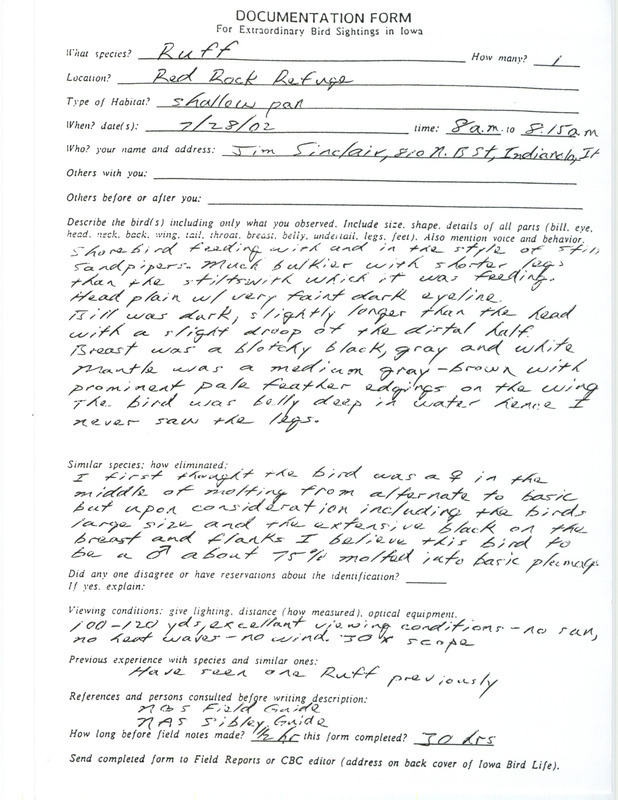 DOCUMENTATION FORM
For Extraordinary Bird Sightings in Iowa
What species? Ruff How many? 1
Location? Red Rock Refuge
Type of Habitat? shallow pan
When? date(s): 7/28/02 time: 8 a.m. to 8:15 a m
Who? your name and address: Jim Sinclair, 810 N. B St, Indianola, IA
Others with you:
Others before or after you:
Describe the bird(s) including only what you observed. Include size, shape, details of all parts (bill, eye,
head, neck, back, wing, tail, throat, breast, belly, undertail, legs, feet). Also mention voice and behavior.
Shorebird feeding with and in the style of Stilt
Sandpipers. Much bulkier with shorter legs
than the stilts with which it was feeding.
Head plain w/ very faint dark eyeline.
Bill was dark, slightly longer than the head
with a slight droop at the distal half.
Breast was a blotchy black, gray and white
Mantle was a medium gray-brown with
prominent pale feather edgings on the wing
The bird was belly deep in water hence I
never saw the legs.
Similar species; how eliminated:
I first thought the bird was a ♀ in the
middle of molting from alternate to basic
but upon consideration including the birds
large size and the extensive black on the
breast and flanks I believe this bird to
be a ♂ about 75% molted into basic plumage
Did any one disagree or have reservations about the identification?
If yes, explain:
Viewing conditions: give lighting, distance (how measured), optical equipment.
100-120 yds, excellent viewing conditions - no sun,
no heat waves - no wind. 30x scope
Previous experience with species and similar ones:
Have seen one Ruff previously
References and persons consulted before writing description:
NGS Field Guide
NAS Sibley Guide
How long before field notes made? ½ hr this form completed? 30 hrs
Send completed form to Field Reports or CBC editor (address on back cover of Iowa Bird Life).